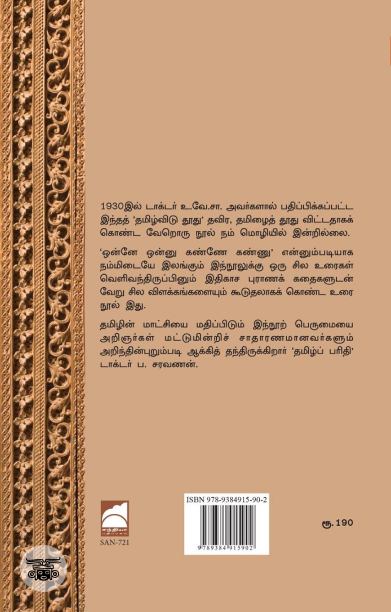 1930இல் டாக்டர் உ.வே.சா. அவர்களால் பதிப்பிக்கப்பட்ட
இந்தத் ‘தமிழ்விடு தூது’ தவிர, தமிழைத் தூது விட்டதாகக்
கொண்ட வேறொரு நூல் நம் மொழியில் இன்றில்லை.
‘ஒன்னே ஒன்னு கண்ணே கண்ணு’ என்னும்படியாக
நம்மிடையே இலங்கும் இந்நூலுக்கு ஒரு சில உரைகள்
வெளிவந்திருப்பினும் இதிகாச புராணக் கதைகளுடன்
வேறு சில விளக்கங்களையும் கூடுதலாகக் கொண்ட உரை
நூல் இது.
தமிழின் மாட்சியை மதிப்பிடும் இந்நூற் பெருமையை
அறிஞர்கள் மட்டுமின்றிச் சாதாரணமானவர்களும்
அறிந்தின்புறும்படி ஆக்கித் தந்திருக்கிறார் ‘தமிழ்ப் பரிதி’
டாக்டர் ப. சரவணன்.
ISBN 978-9384915-90-2
9789384915902
SAN-721
ரூ. 190